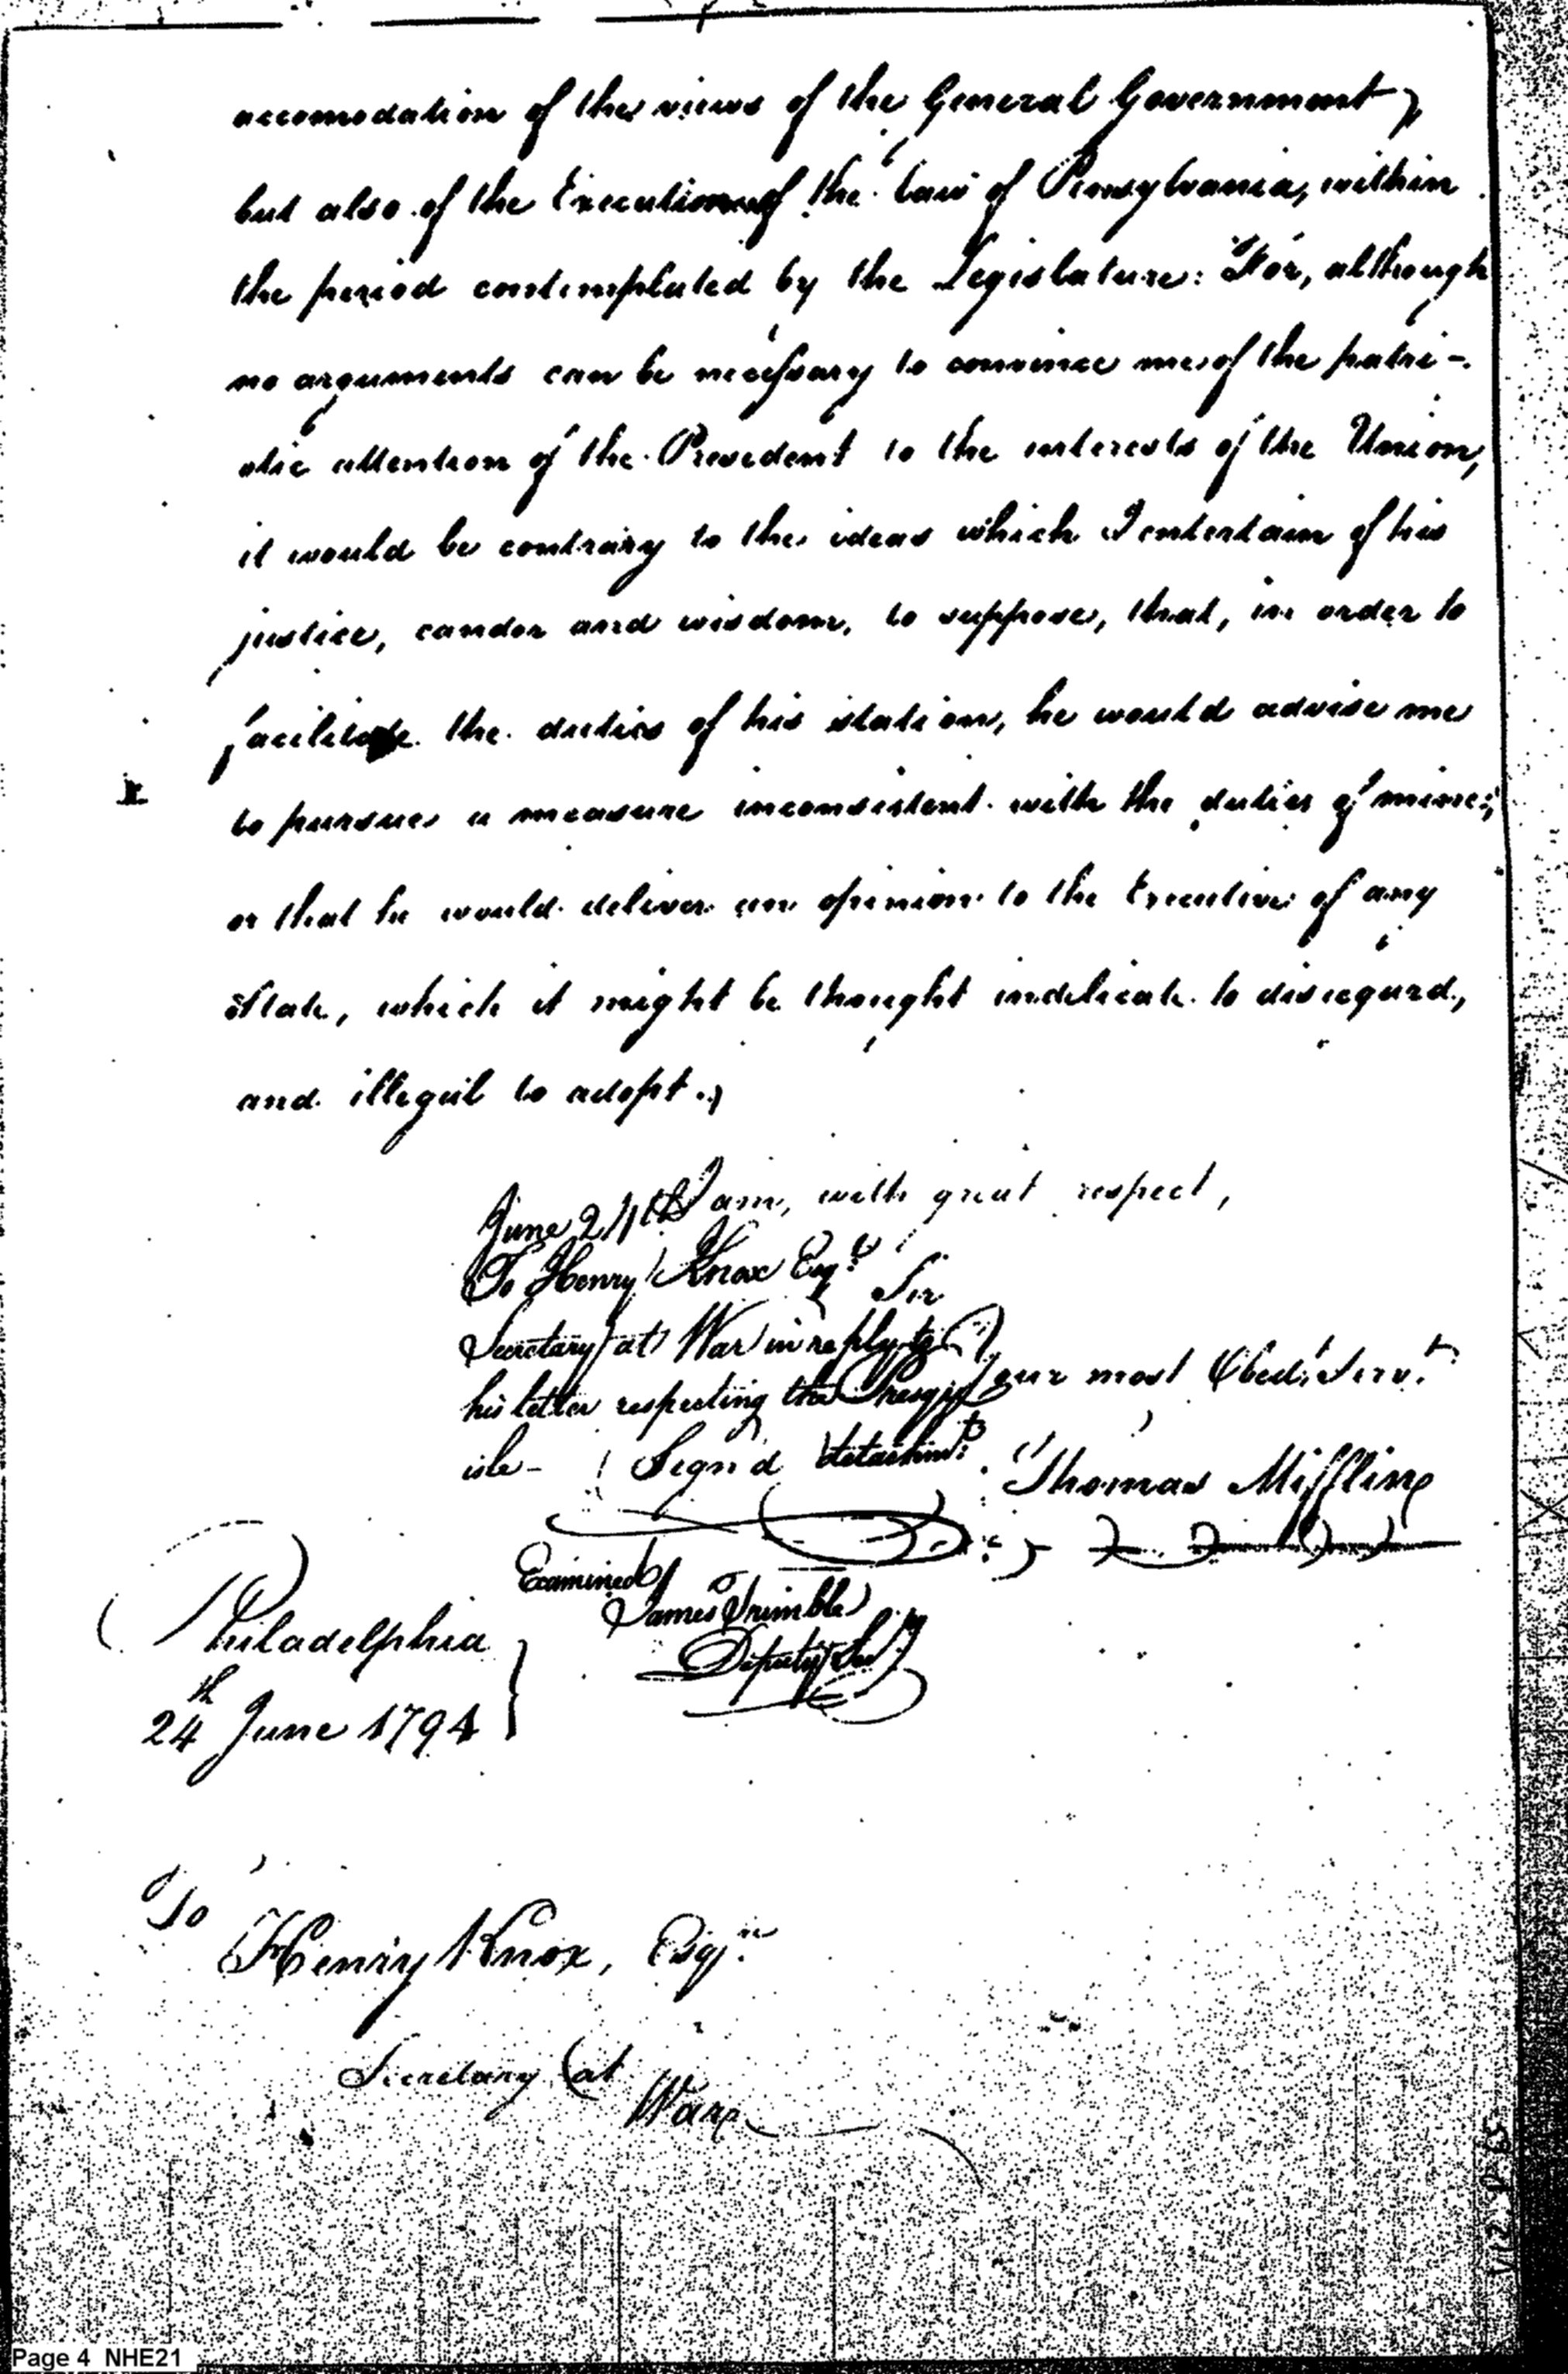 accomodation of the views of the General Government,
but also of the Execution of the Law of Pensylvania, within
the period contemplated by the Legislature: For, although
no arguments can be necessary to convince me of the patri-
otic attention of the President to the interests of the Union,
it would be contrary to the ideas which I entertain of his
justice, candor and wisdom, to suppose, that, in order to
facilitate the duties of his station, he would advise me
to pursue a measure inconsistent with the duties of mine;
or that he would deliver an opinion to the Executive of any
State, which it might be thought indelicate to disregard,
and illegal to adopt.
I am, with great respect,
Sir
Your most Obedt. Servt.
Sign'd Thomas Mifflin
June 24th
To Henry Knox Esqr.
Secretary at War in reply to
his letter respecting the Presqu
isle - detachmt.
Examined
James Trimble
Deputy Secy
Philadelphia
24th June 1794
To
Henry Knox, Esqr.
Secretary at
War
Page 4 NHE21